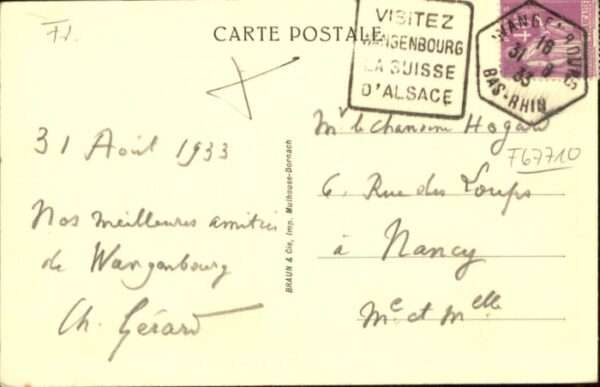 F1.
CARTE POSTALE
VISITEZ
WANGENBOURG
LA SUISSE
D'ALSACE
WANGENBOURG
18
31 - 8
33
BAS-RHIN
31 Août 1933
Nos meilleures amitiés
de Wangenbourg
Ch. Gérard
BRAUN & Cie, Imp. Mulhouse-Dornach
Mr le chanoine Hogard
F67710
6. Rue des Loups
à Nancy
Me et Melle